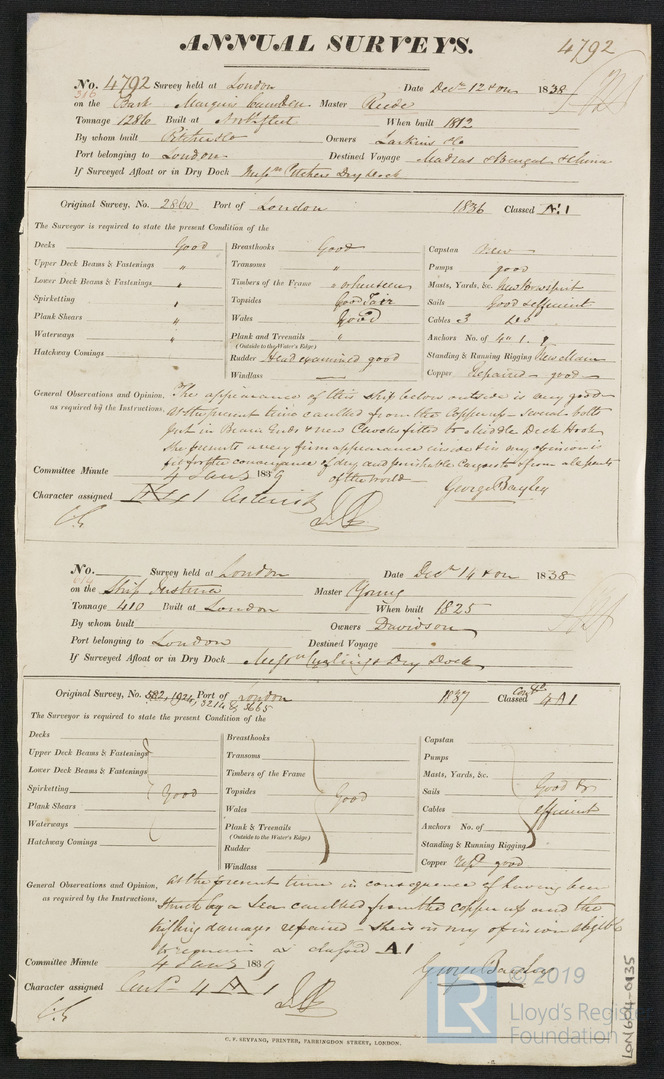 ANNUAL SURVEYS.
4792
No. 4792 Survey held at London Date Decr 12 & on 1838
on the Bark Marquis Camden Master Reede
Tonnage 1286 Built at Northfleet When built 1812
By whom built Pitcher & Co Owners Larkins & Co
Port belonging to London Destined Voyage Madras & Bengal & China
If Surveyed Afloat or in Dry Dock Messrs Pitchers Dry Dock
Original Survey, No. 2860 Port of London 1836 Classed Æ1
The Surveyor is required to state the present Condition of the
Decks Good
Upper Deck Beams & Fastenings "
Lower Deck Beams & Fastenings "
Spirketting "
Plank Shears "
Waterways "
Hatchway Comings
Breasthooks Good
Transoms "
Timbers of the Frame " where seen
Topsides Good Fair
Wales Good
Plank and Treenails "
(Outside to the Water's Edge)
Rudder Head examined good
Windlass —
Capstan New
Pumps good
Masts, Yards, &c. New Bowsprit
Sails Good & efficient
Cables 3 Do
Anchors No. of 4 " 1 "
Standing & Running Rigging New Main
Copper Repaired - good
General Observations and Opinion, The appearance of this ship below outside is very good
as required by the Instructions, at the present time caulked from the copper up - Several bolts
put in Beam Ends & new Chocks fitted to Middle Deck Hook
She presents a very firm appearance inside & is in my opinion is
fit for the conveyance of dry and perishable Cargoes to & from all parts
of the world
Committee Minute 4 Jany 1839
George Bayley
Character assigned Æ 1 Asterisk
No. Survey held at London Date Decr 14 & on 1838
614
on the Ship Justina Master Young
Tonnage 410 Built at London When built 1825
By whom built Owners Davidson
Port belonging to London Destined Voyage
If Surveyed Afloat or in Dry Dock Messrs Curlings Dry Dock
Original Survey, No. 582, 1924, 3214 & 3665 Port of London 1837 Classed Contd. 4 A1
The Surveyor is required to state the present Condition of the
Decks
Upper Deck Beams & Fastenings
Lower Deck Beams & Fastenings
Spirketting Good
Plank Shears
Waterways
Hatchway Comings
Breasthooks
Transoms
Timbers of the Frame
Topsides Good
Wales
Plank & Treenails
(Outside to the Water's Edge)
Rudder
Windlass
Capstan
Pumps
Masts, Yards, &c.
Sails Good &
Cables efficient
Anchors No. of
Standing & Running Rigging
Copper repd good
General Observations and Opinion, at the present time in consequence of having been
as required by the Instructions, struck by a Sea caulked from the copper up and the
trifling damages repaired - She is in my opinion eligible
to remain as classed A1
Committee Minute 4 Jany 1839
George Bayley
Character assigned Contd 4 A 1
C. F. SEYFANG, PRINTER, FARRINGDON STREET, LONDON.
LR
© 2019
Lloyd's Register
Foundation
LON604-0135